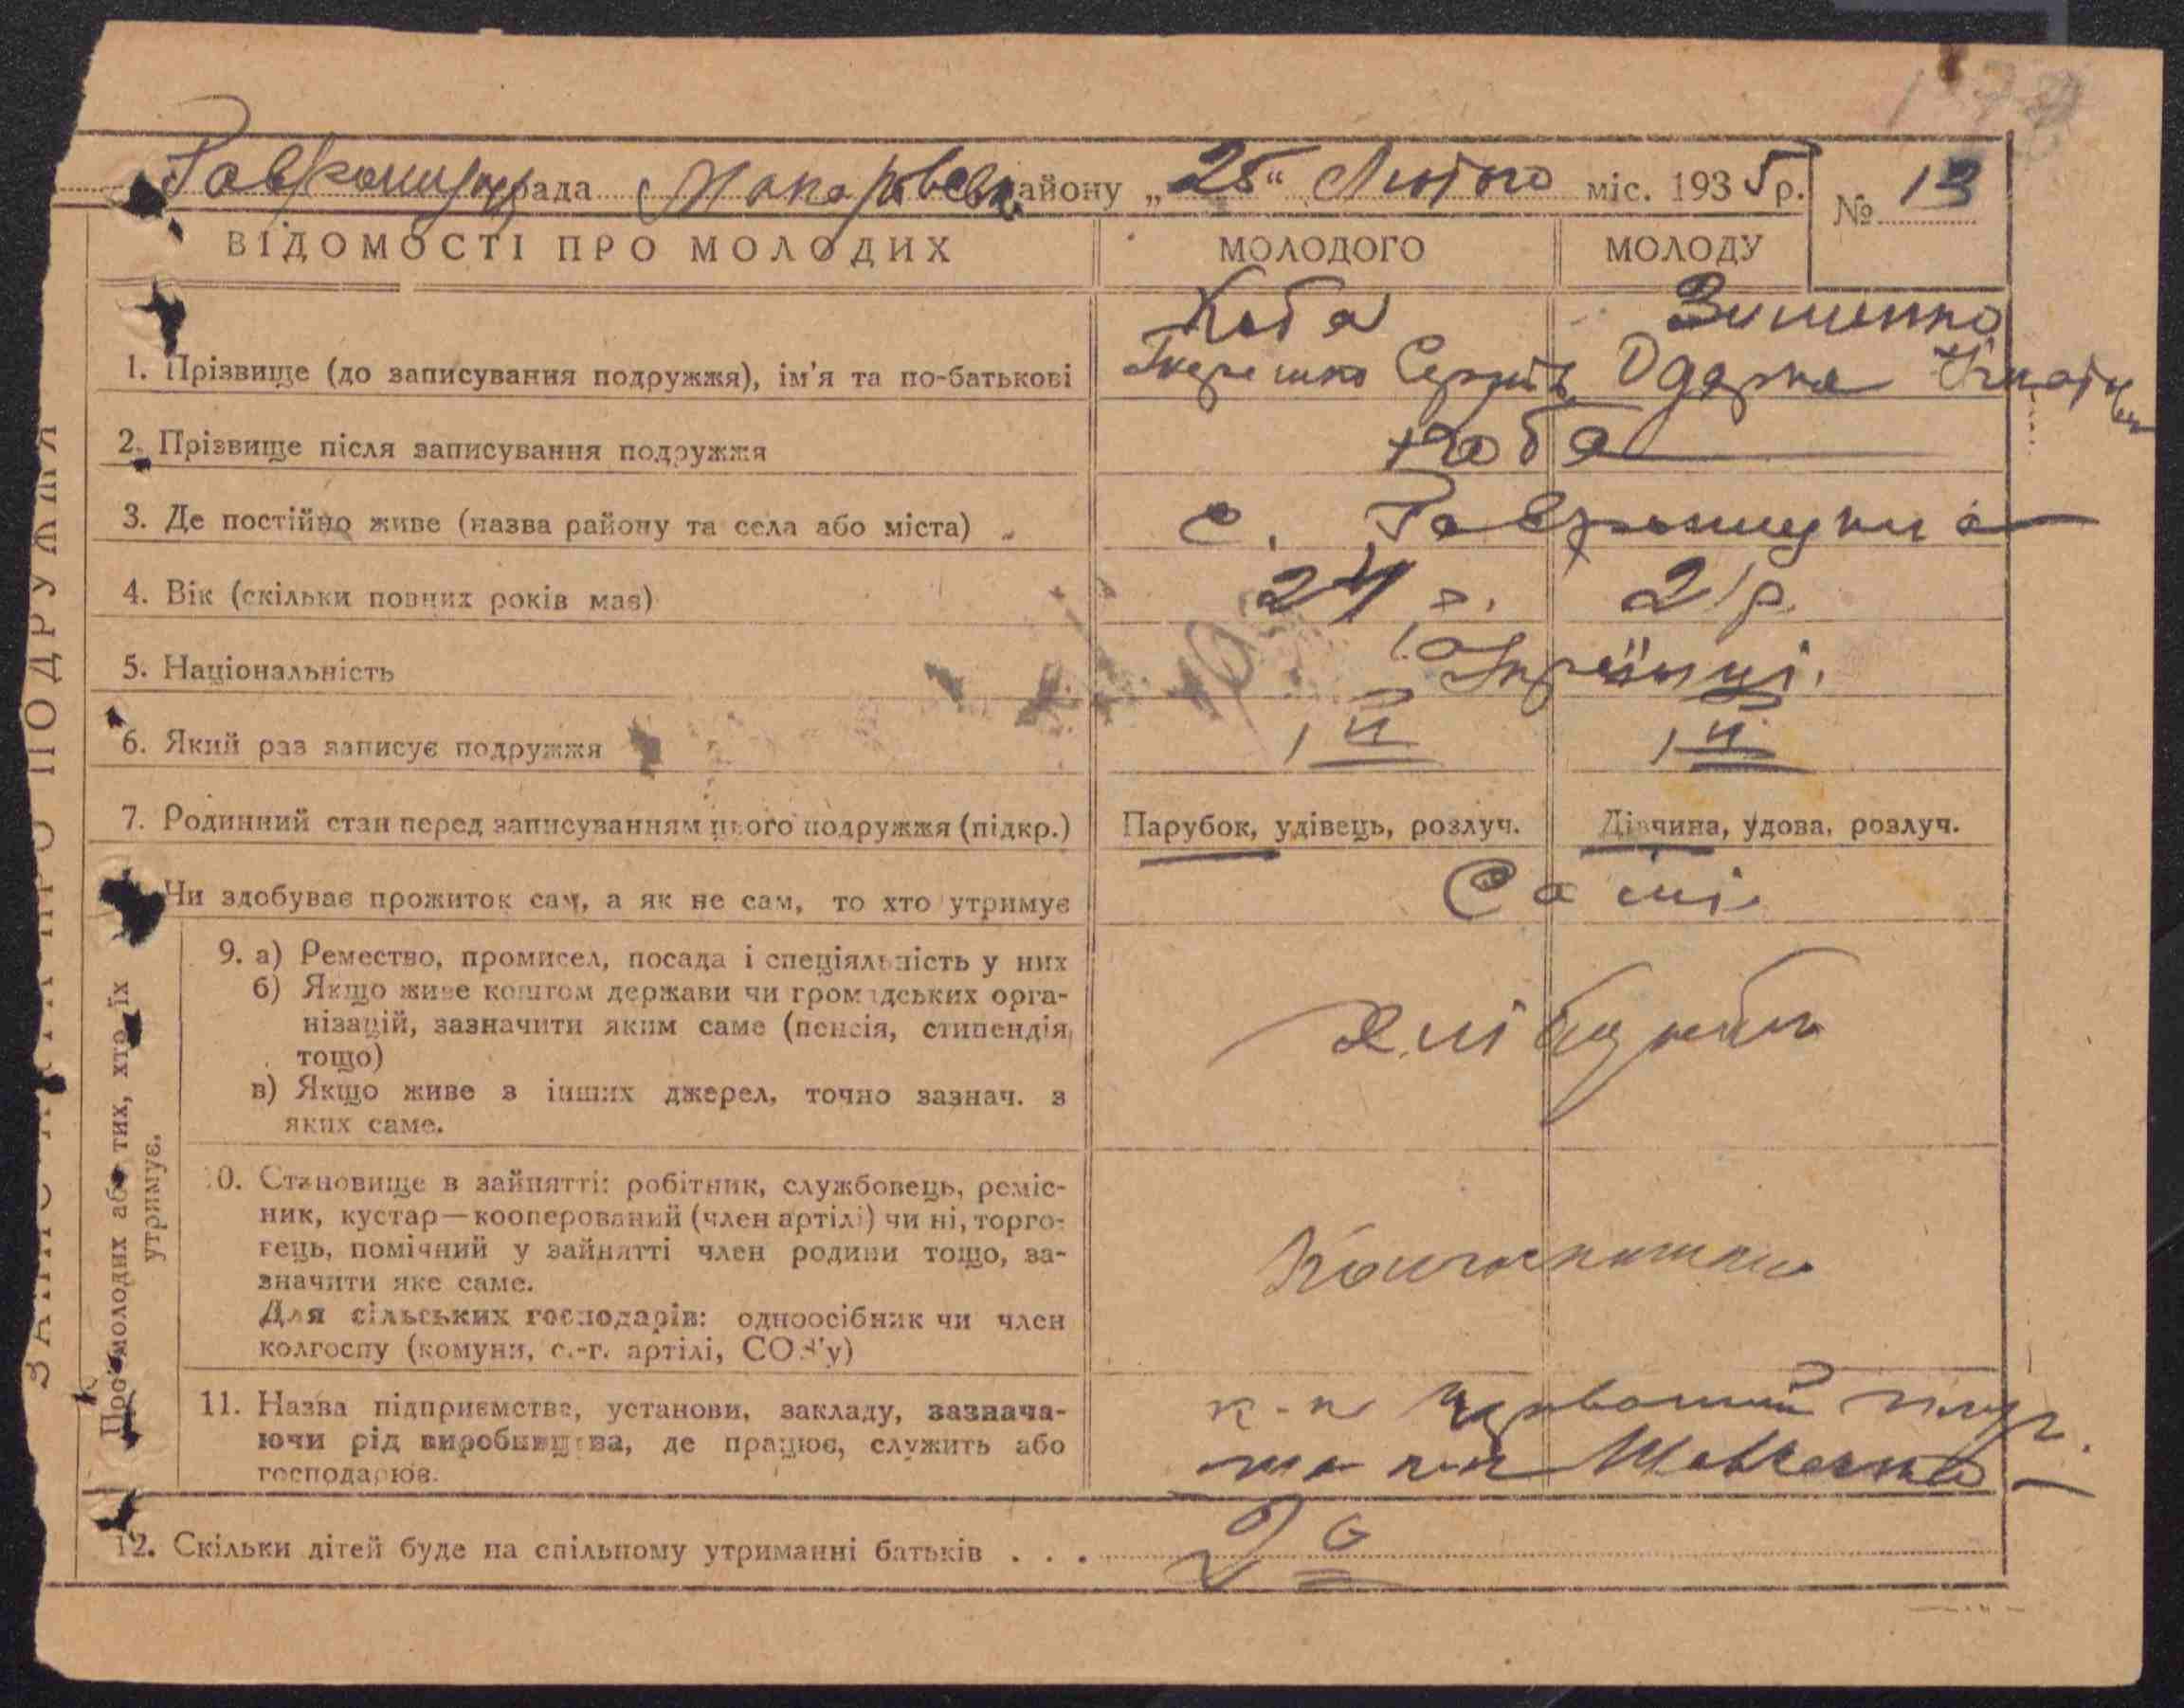 рада района „25“ Лютого міс. 1935 р. № 13
ВІДОМОСТІ ПРО МОЛОДИХ МОЛОДОГО МОЛОДУ
Коба
1. Прізвище (до записування подружжя), ім'я та по-батькові Одарка
2. Прізвище після записування подружжя Коба
3. Де постійно живе (назва району та села або міста) с.
4. Вік (скільки повних років має) 24 р. 21 р.
5. Національність Українці.
6. Який раз записує подружжя 1й 1й
7. Родинний стан перед записуванням цього подружжя (підкр.) Парубок, удівець, розлуч. Дівчина, удова, розлуч.
Чи здобуває прожиток сам, а як не сам, то хто утримує Самі
9. а) Ремество, промисел, посада і спеціяльність у них
б) Якщо живе коштом держави чи громадських орга-
нізацій, зазначити яким саме (пенсія, стипендія,
тощо)
в) Якщо живе з інших джерел, точно зазнач. з
яких саме.
0. Становище в зайнятті: робітник, службовець, реміс-
ник, кустар—кооперований (член артілі) чи ні, торго-
вець, помічний у зайнятті член родини тощо, за-
значити яке саме.
Для сільських господарів: одноосібник чи член
колгоспу (комуни, с.-г. артілі, СОЗ'у)
11. Назва підприємства, установи, закладу, зазнача-
ючи рід виробництва, де працює, служить або
господарює.
Шевченка
12. Скільки дітей буде на спільному утриманні батьків . . .
Про молодих або тих, хто їх
утримує.
ПРО ПОДРУЖЖЯ